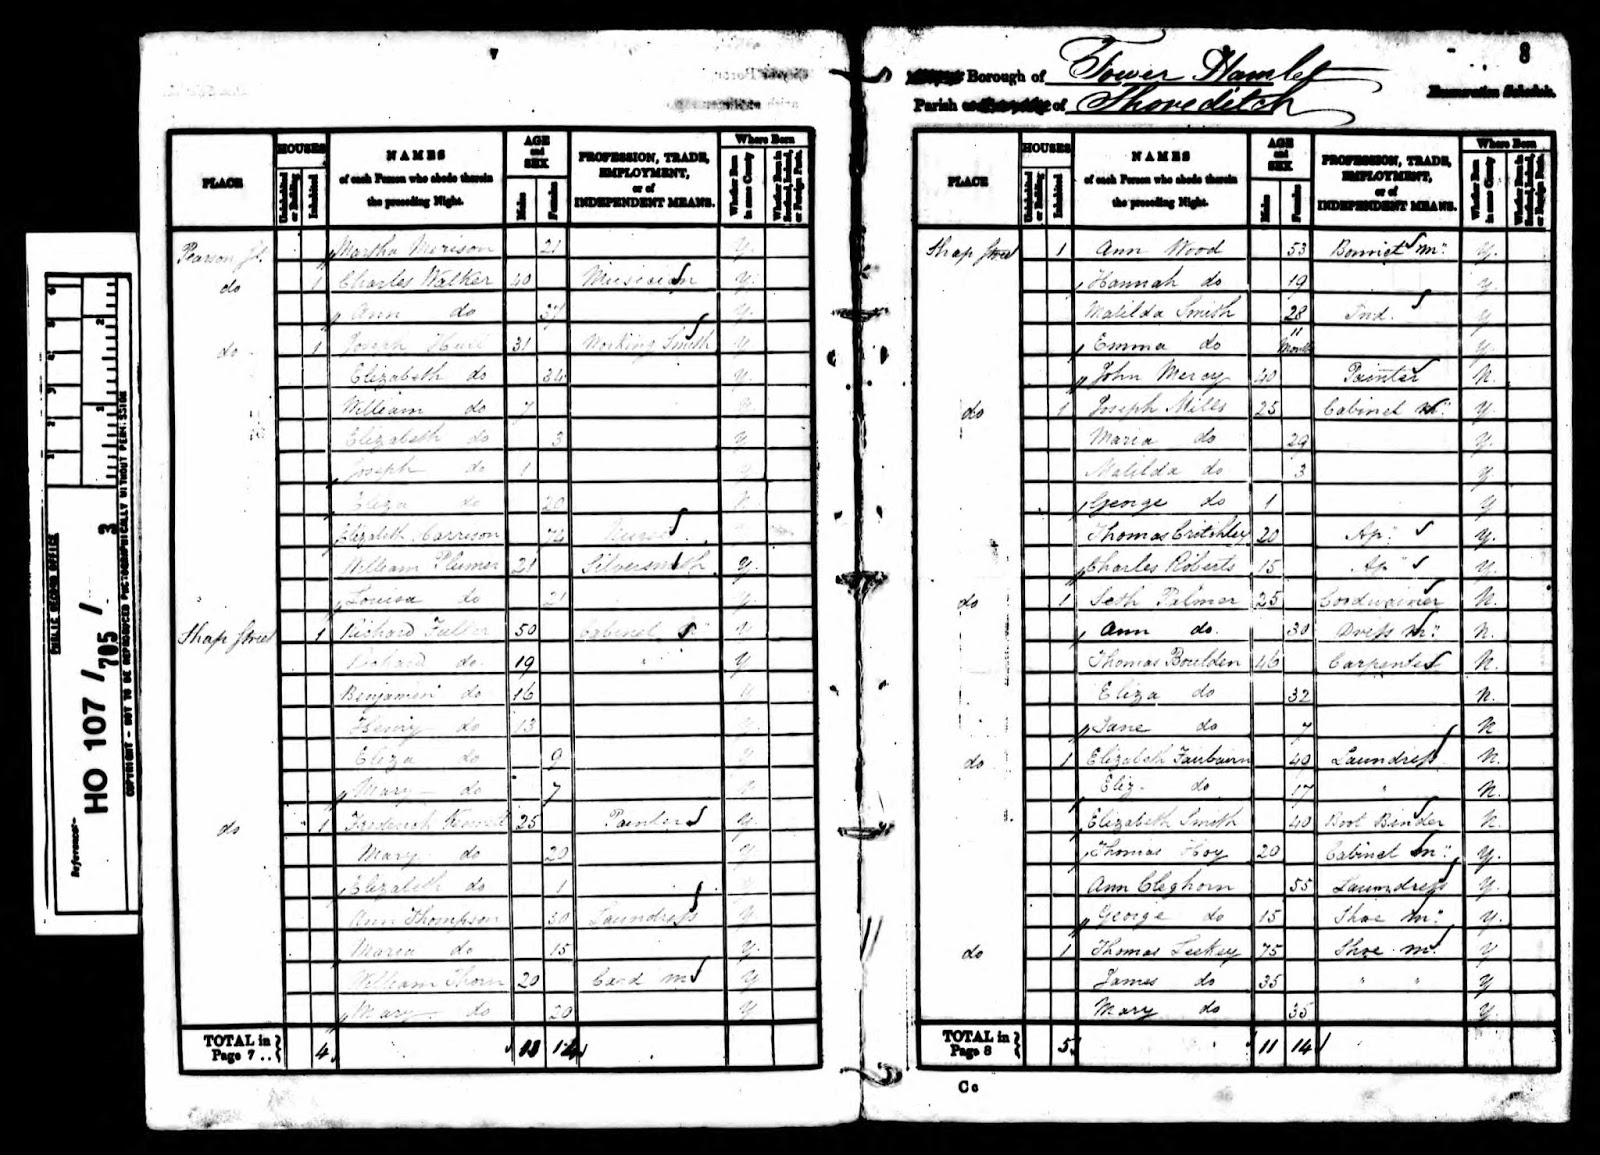 8
Borough of Tower Hamlet
Parish of Shoreditch
Enumeration Schedule.
PLACE
HOUSES
Uninhabited or Building
Inhabited
NAMES of each Person who abode therein the preceding Night.
AGE and SEX
Males
Females
PROFESSION, TRADE, EMPLOYMENT, or of INDEPENDENT MEANS.
Where Born
Whether Born in same County
Whether Born in Scotland, Ireland, or Foreign Parts.
Pearson St. Martha 21 Y.
do 1 Charles Walker 40 Musician Y.
Ann do 37 Y.
do 1 Joseph 31 Working Smith Y
Elizabeth do 34 Y.
William do 7
Elizabeth do 3 Y
Joseph do 1 Y
Eliza do 20 N.
Elizabeth Garrison 74
William Plumer 21 Silversmith Y.
Louisa do 21 Y.
Shap Street 1 Richard Fuller 50 Cabinet Y
Richard do 19 " Y
Benjamin do 16 Y
Henry do 13 Y.
Eliza do 9 Y
Mary do 7
do 1 Frederick 25 Painter Y.
Mary do 20 Y
Elizabeth do 1 Y
Ann Thompson 30 Laundress Y
Maria do 15 Y.
William Thorn 20 Card m Y
Mary do 20 Y
TOTAL in Page 7 .. 4 14
PLACE
HOUSES
Uninhabited or Building
Inhabited
NAMES of each Person who abode therein the preceding Night.
AGE and SEX
Males
Females
PROFESSION, TRADE, EMPLOYMENT, or of INDEPENDENT MEANS.
Where Born
Whether Born in same County
Whether Born in Scotland, Ireland, or Foreign Parts.
Shap Street 1 Ann Wood 53 Bonnet M: Y.
Hannah do 19 Y
Matilda Smith 28 Ind. Y
Emma do 11 Months Y.
John Mercy 40 Painter N.
do 1 Joseph Mills 25 Cabinet M: Y.
Maria do 29 Y.
Matilda do 3 Y
George do 1 Y
Thomas Critchley 20 Ap: Y.
Charles Roberts 15 Ap: Y.
do 1 Seth Palmer 25 Cordwainer N.
Ann do. 30 Dress M: N.
Thomas Boulden 46 Carpenter N.
Eliza do 32 N.
Jane do 7 N
do 1 Elizabeth Fairbairn 49 Laundress N.
Eliz. do 17 " N.
Elizabeth Smith 40 Boot Binder N.
Thomas Hoy 20 Cabinet M: Y.
Ann Cleghorn 55 Laundress Y.
George do 15 Shoe M: Y.
do 1 Thomas Leekey 75 Shoe M: Y
James do 35 " " Y
Mary do 35 Y.
TOTAL in Page 8 5 11 14
Cc
PUBLIC RECORD OFFICE
Reference:-
HO 107 / 705 / 3
COPYRIGHT - NOT TO BE REPRODUCED PHOTOGRAPHICALLY WITHOUT PERMISSION
1 2 3 4 5 6
1 2